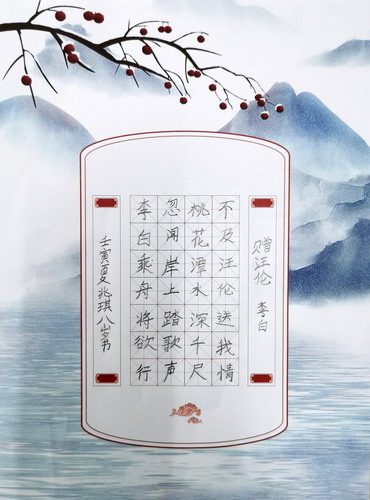 赠汪伦 李白
李白乘舟将欲行
忽闻岸上踏歌声
桃花潭水深千尺
不及汪伦送我情
壬寅夏兆琪八岁书